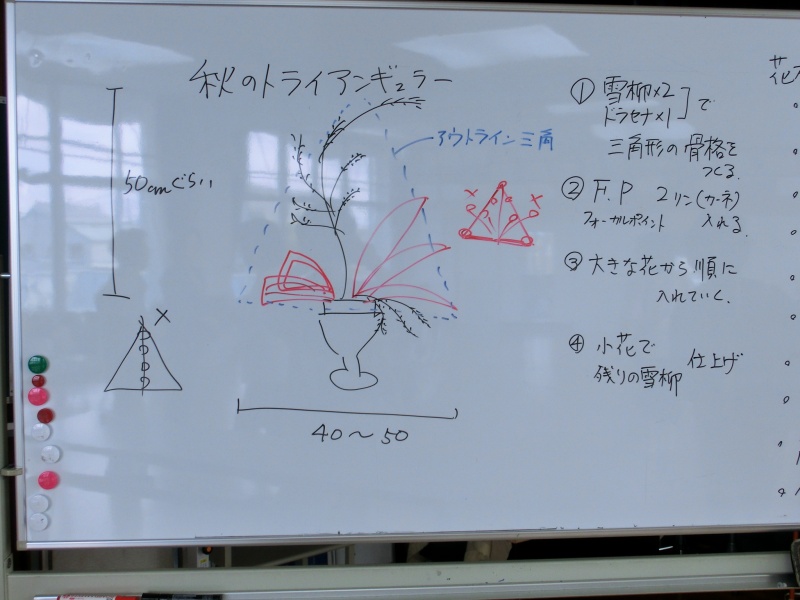 秋のトライアンギュラー
50cmぐらい
アウトライン三角
×
×
×
40〜50
① 雪柳×2
ドラセナ×1 で
三角形の骨格を
つくる.
② F.P 2リン(カーネ)
フォーカルポイント 入れる.
③ 大きな花から順に
入れていく.
④ 小花で
残りの雪柳 仕上げ
花